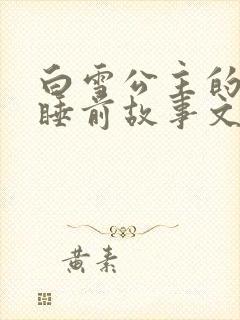 白雪公主的
睡前故事文
黄素